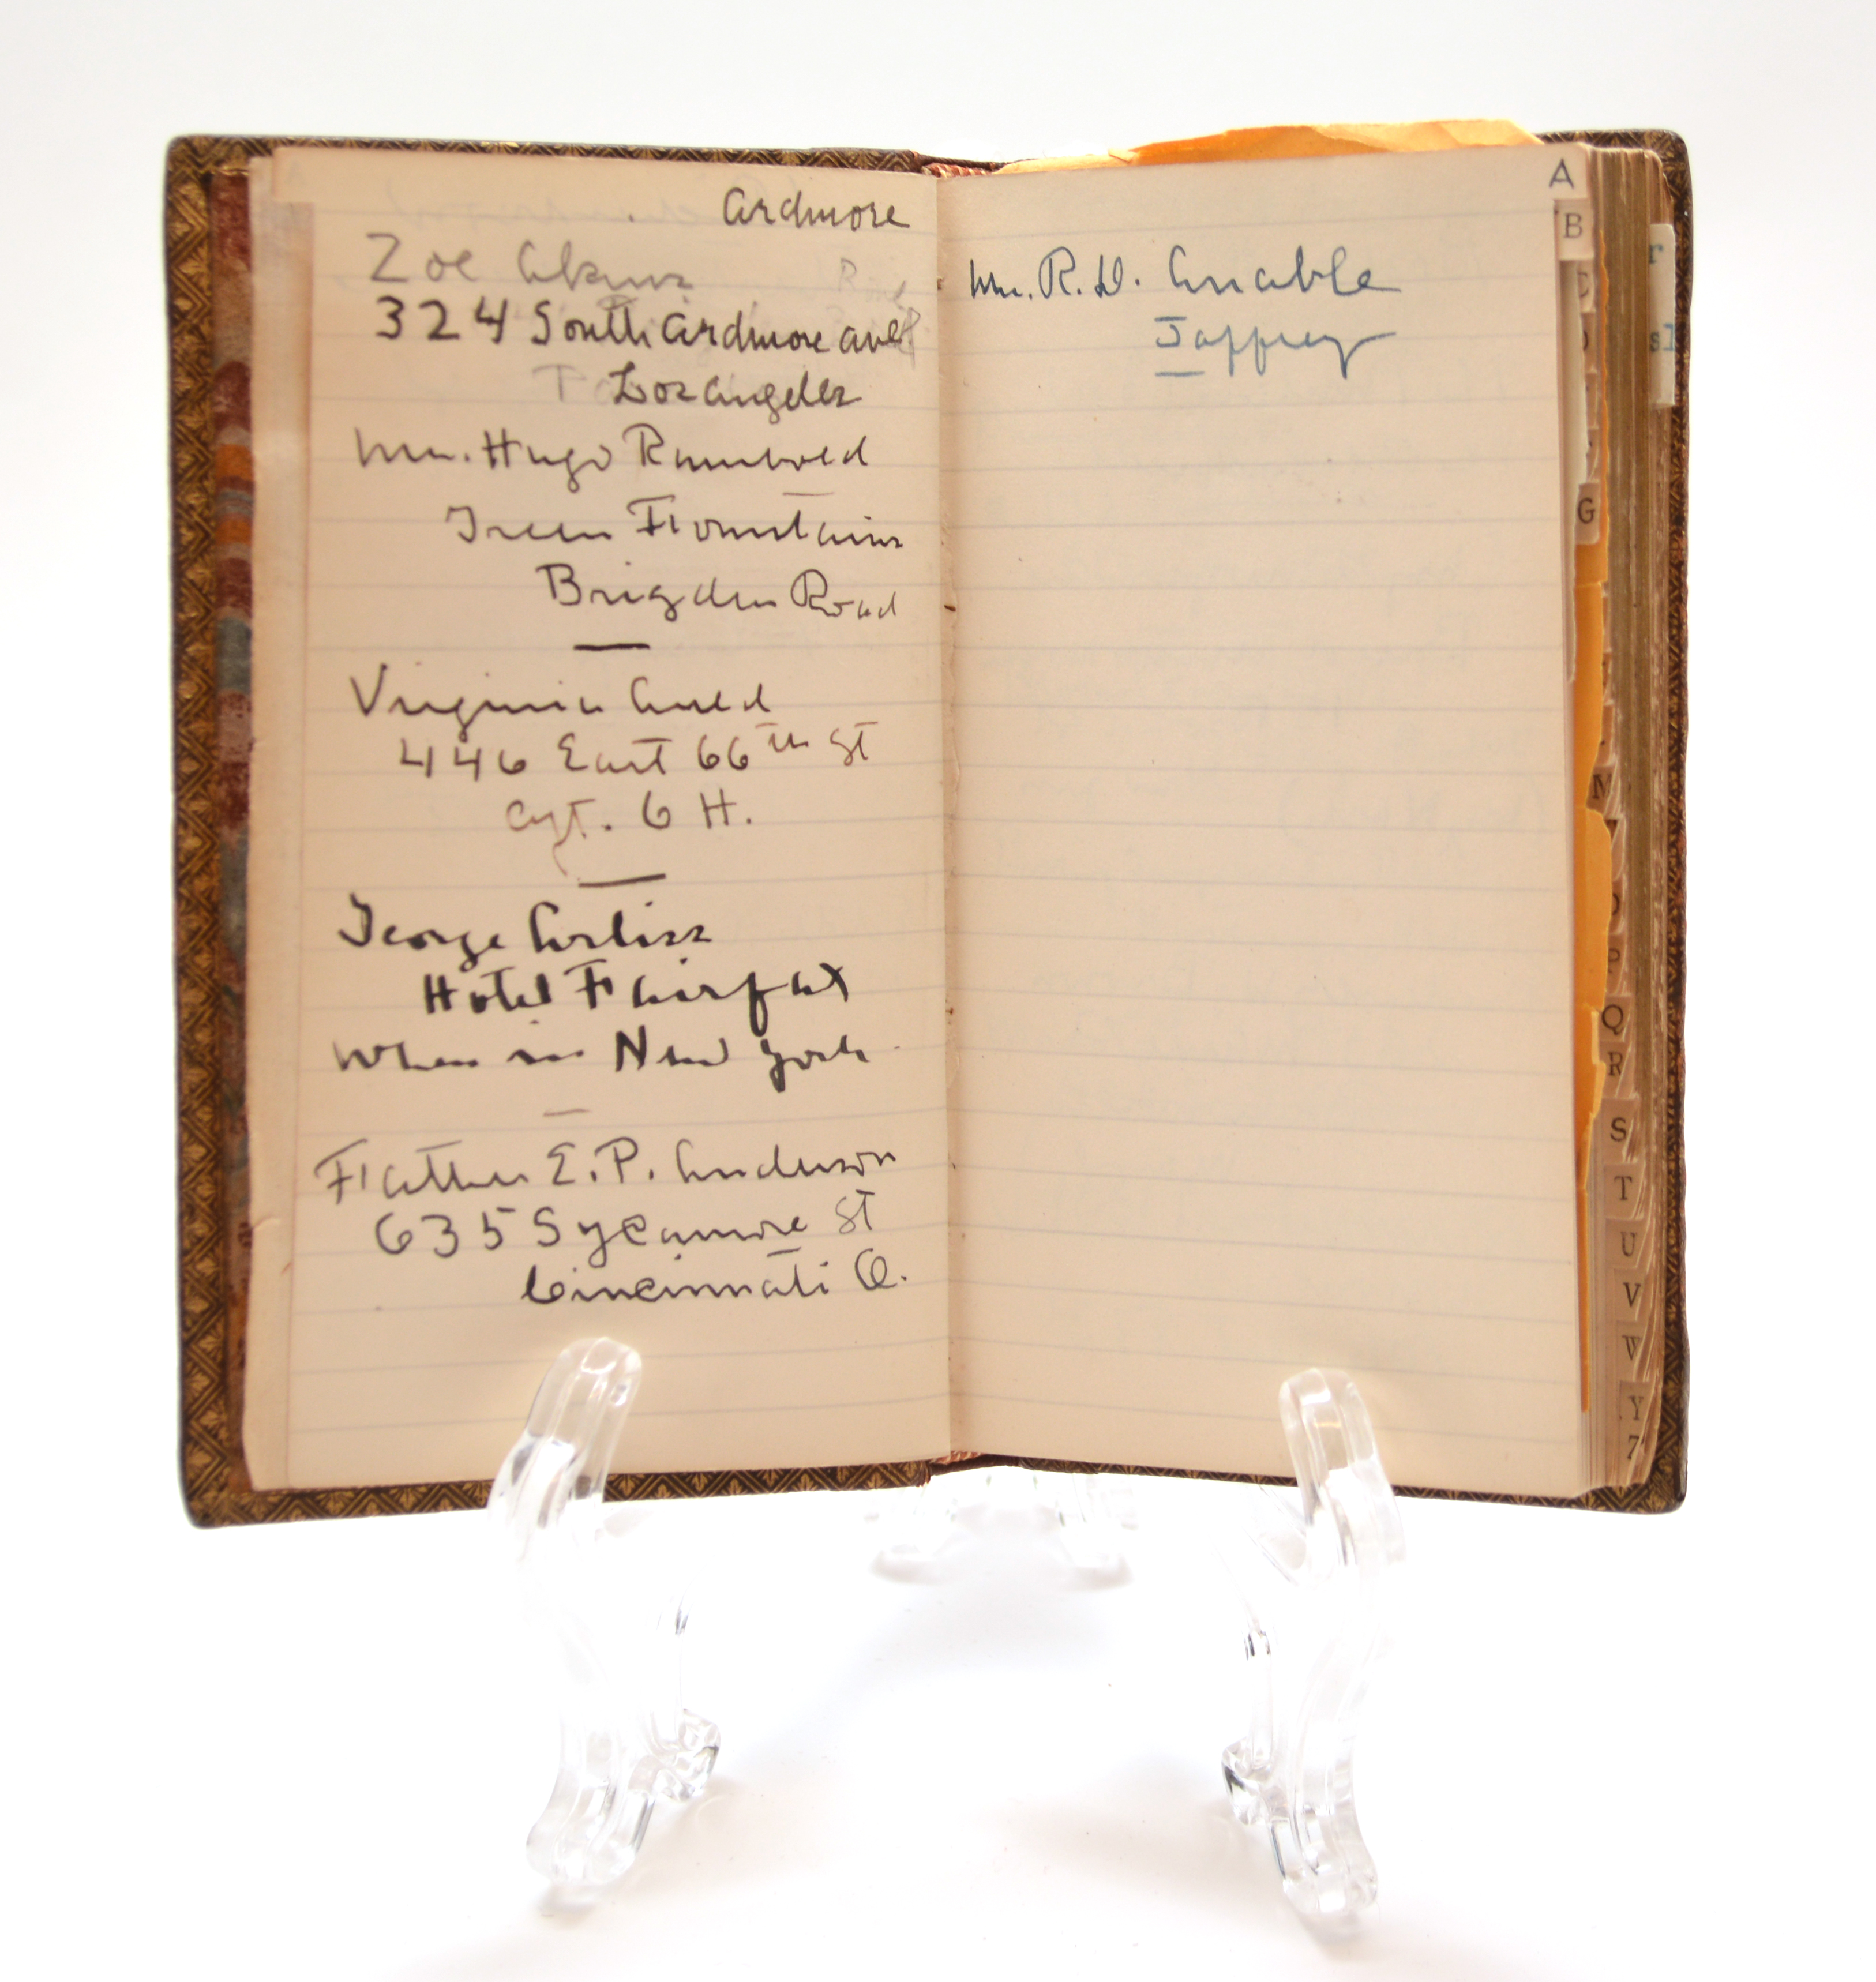 Ardmore
Zoe Akins
324 South Ardmore Ave
Los Angeles
Mrs. Hugo Rumbold
Green Fountains
Brigden Road
Virginia Auld
446 East 66th St
Apt. 6 H.
George Arliss
Hotel Fairfax
When in New York
Father E.P. Anderson
635 Sycamore St
Cincinnati O.
A
Mrs. R.D. Anable
Jaffrey
B
G
M
P
Q
R
S
T
U
V
W
Y
Z